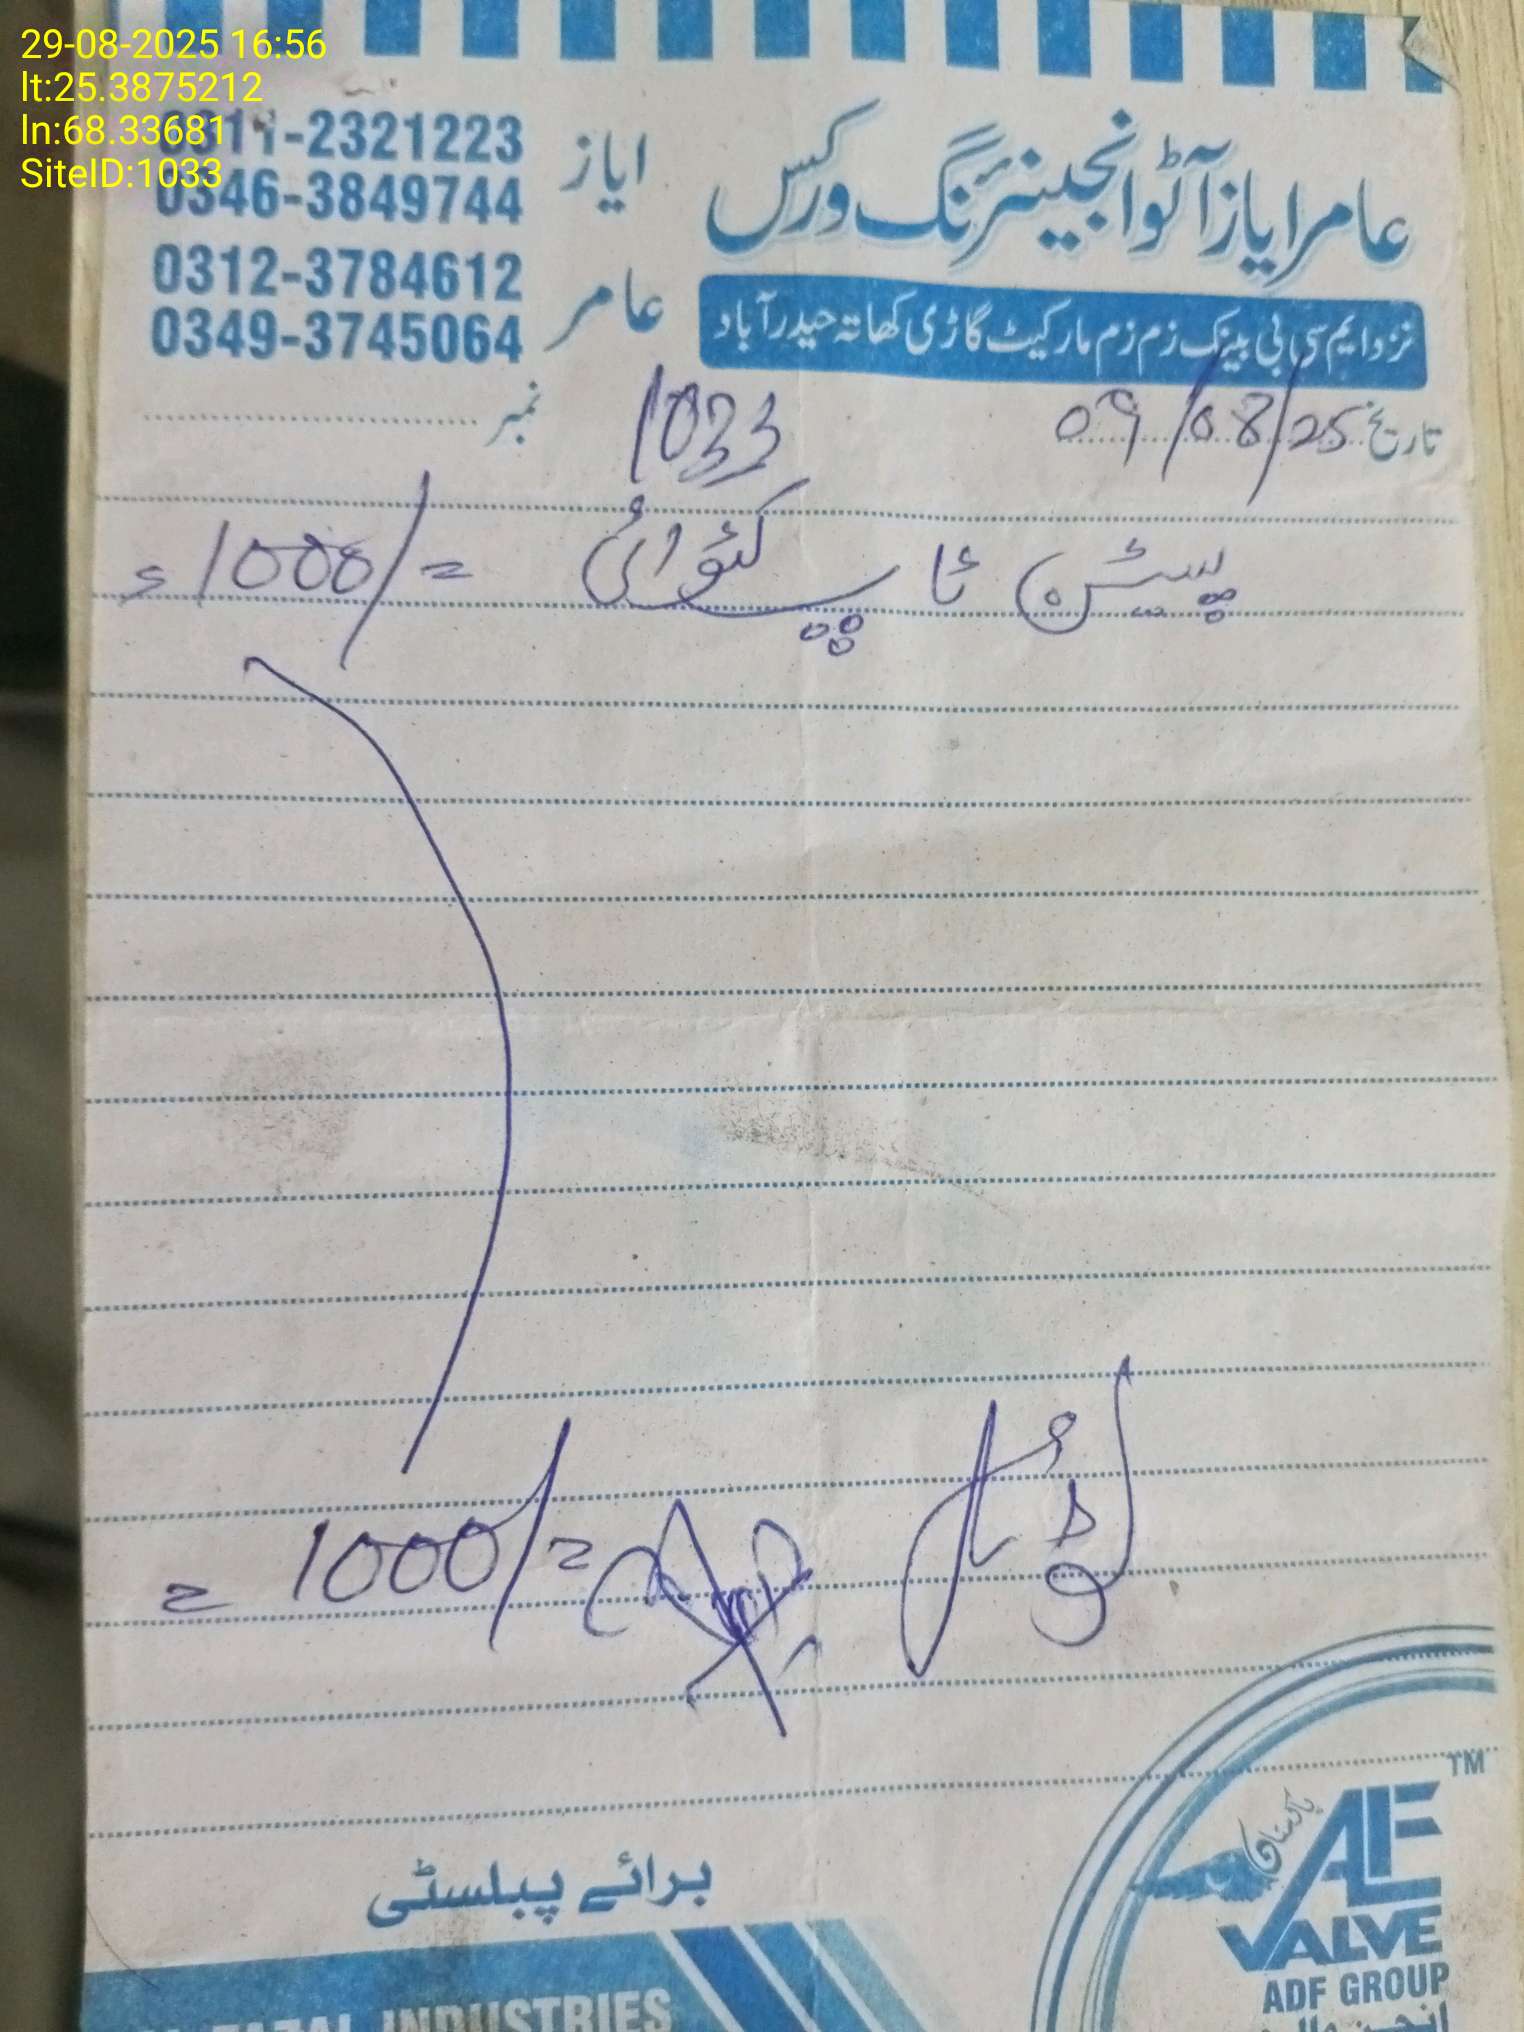 29-08-2025 16:56
lt:25.3875212
ln:68.33681
SiteID:1033
عامر ایاز آٹو انجینئرنگ ورکس
ایاز 0311-2321223
0346-3849744
عامر 0312-3784612
0349-3745064
نزد ایم سی بی بینک زم زم مارکیٹ گاڑی کھاتہ حیدرآباد
تاریخ 09/08/25 1033 نمبر
پسٹن ٹاپ کٹوائی =1000/=
ٹوٹل =1000/=
برائے پبلسٹی
AL-FAZAL INDUSTRIES
TM
پاکستان
AF
VALVE
ADF GROUP
انجن والو